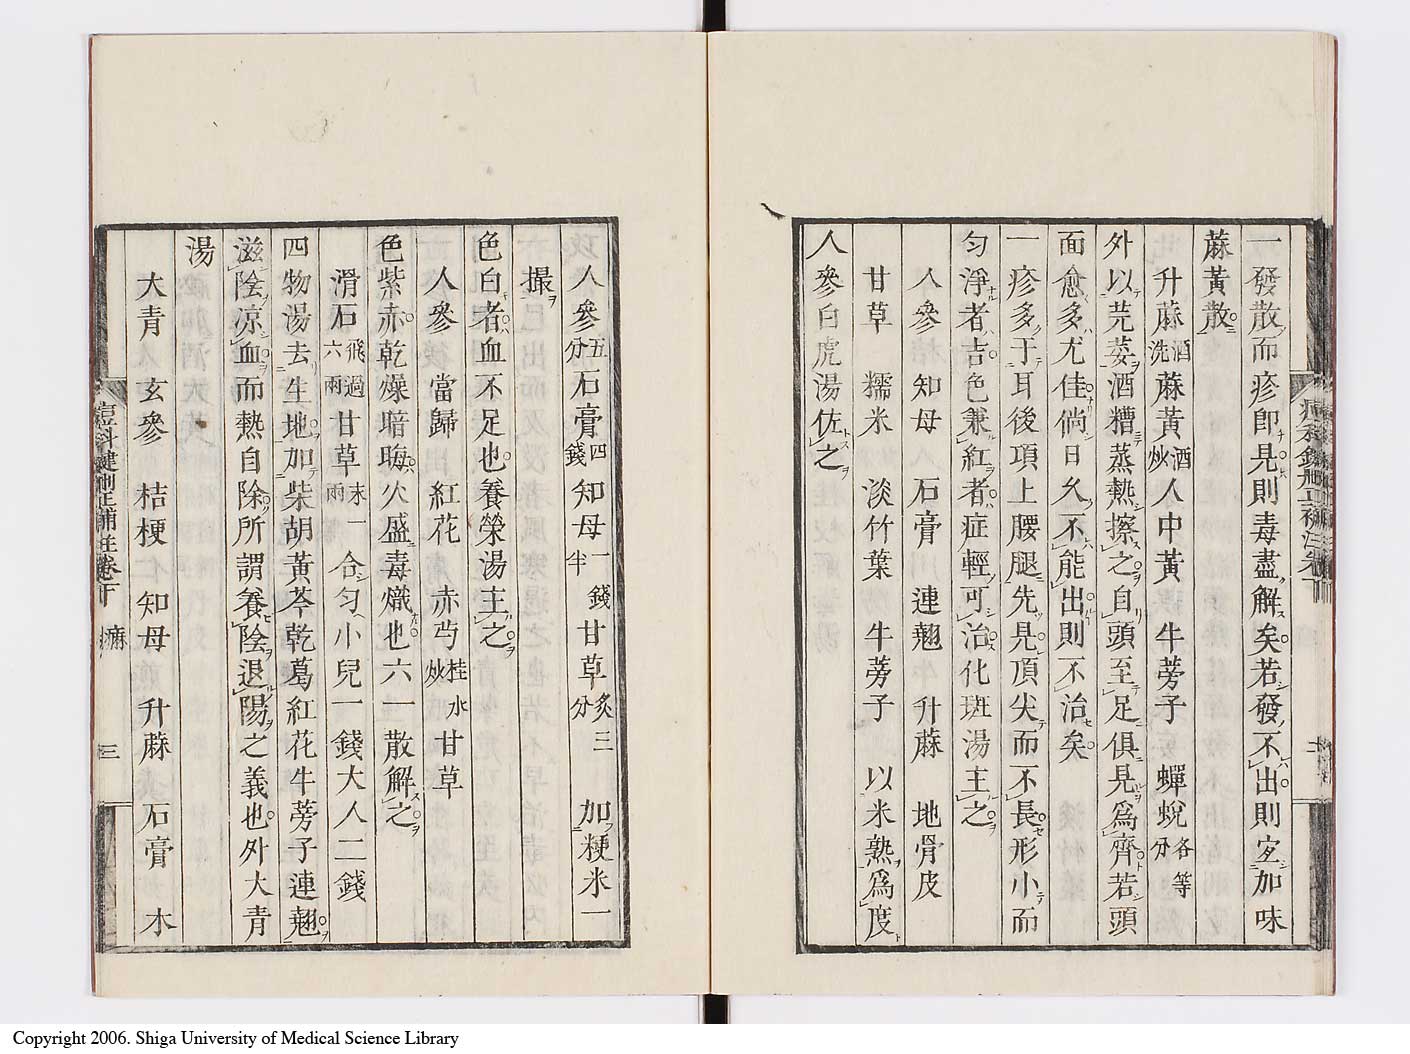 一發散而疹卽見則毒盡解矣若發不出則宐加味
蔴黃散
升蔴酒洗蔴黃酒炒人中黃牛蒡子蟬蛻各等分
外以芫荽酒糟蒸熱擦之自頭至足俱見爲齊若頭
面愈多尤佳倘日久不能出則不治矣
一疹多于耳後項上腰腿先見頂尖而不長形小而
勻淨者吉色兼紅者症輕可治化斑湯主之
人參 知母 石膏 連翹 升蔴 地骨皮
甘草 糯米 淡竹葉 牛蒡子 以米熟爲度
人參白虎湯佐之
人參五分石膏四錢知母一錢半甘草炙三分 加粳米一
撮
色白者血不足也養榮湯主之
人參 當歸 紅花 赤芍桂水炒甘草
色紫赤乾燥暗晦火盛毒熾也六一散解之
滑石飛過六兩甘草末一兩 合勻小兒一錢大人二錢
四物湯去生地加柴胡黃芩乾葛紅花牛蒡子連翹
滋陰凉血而熱自除所謂養陰退陽之義也外大青
湯
大青 玄參 桔梗 知母 升蔴 石膏 木
痘科鍵刪正補註卷下 痲 三
Copyright 2006. Shiga University of Medical Science Library